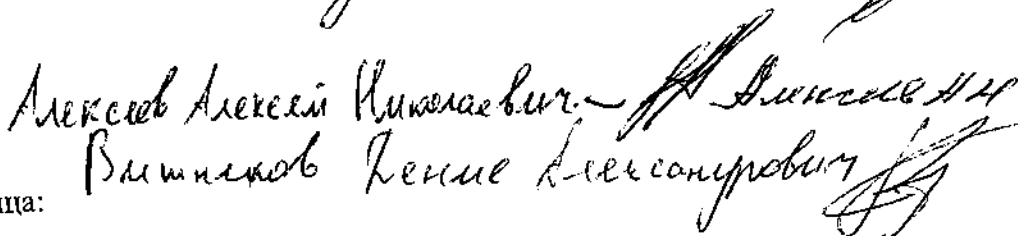 Алексеев Алексей Николаевич - Алексеев АН
Денис Александрович
ица: